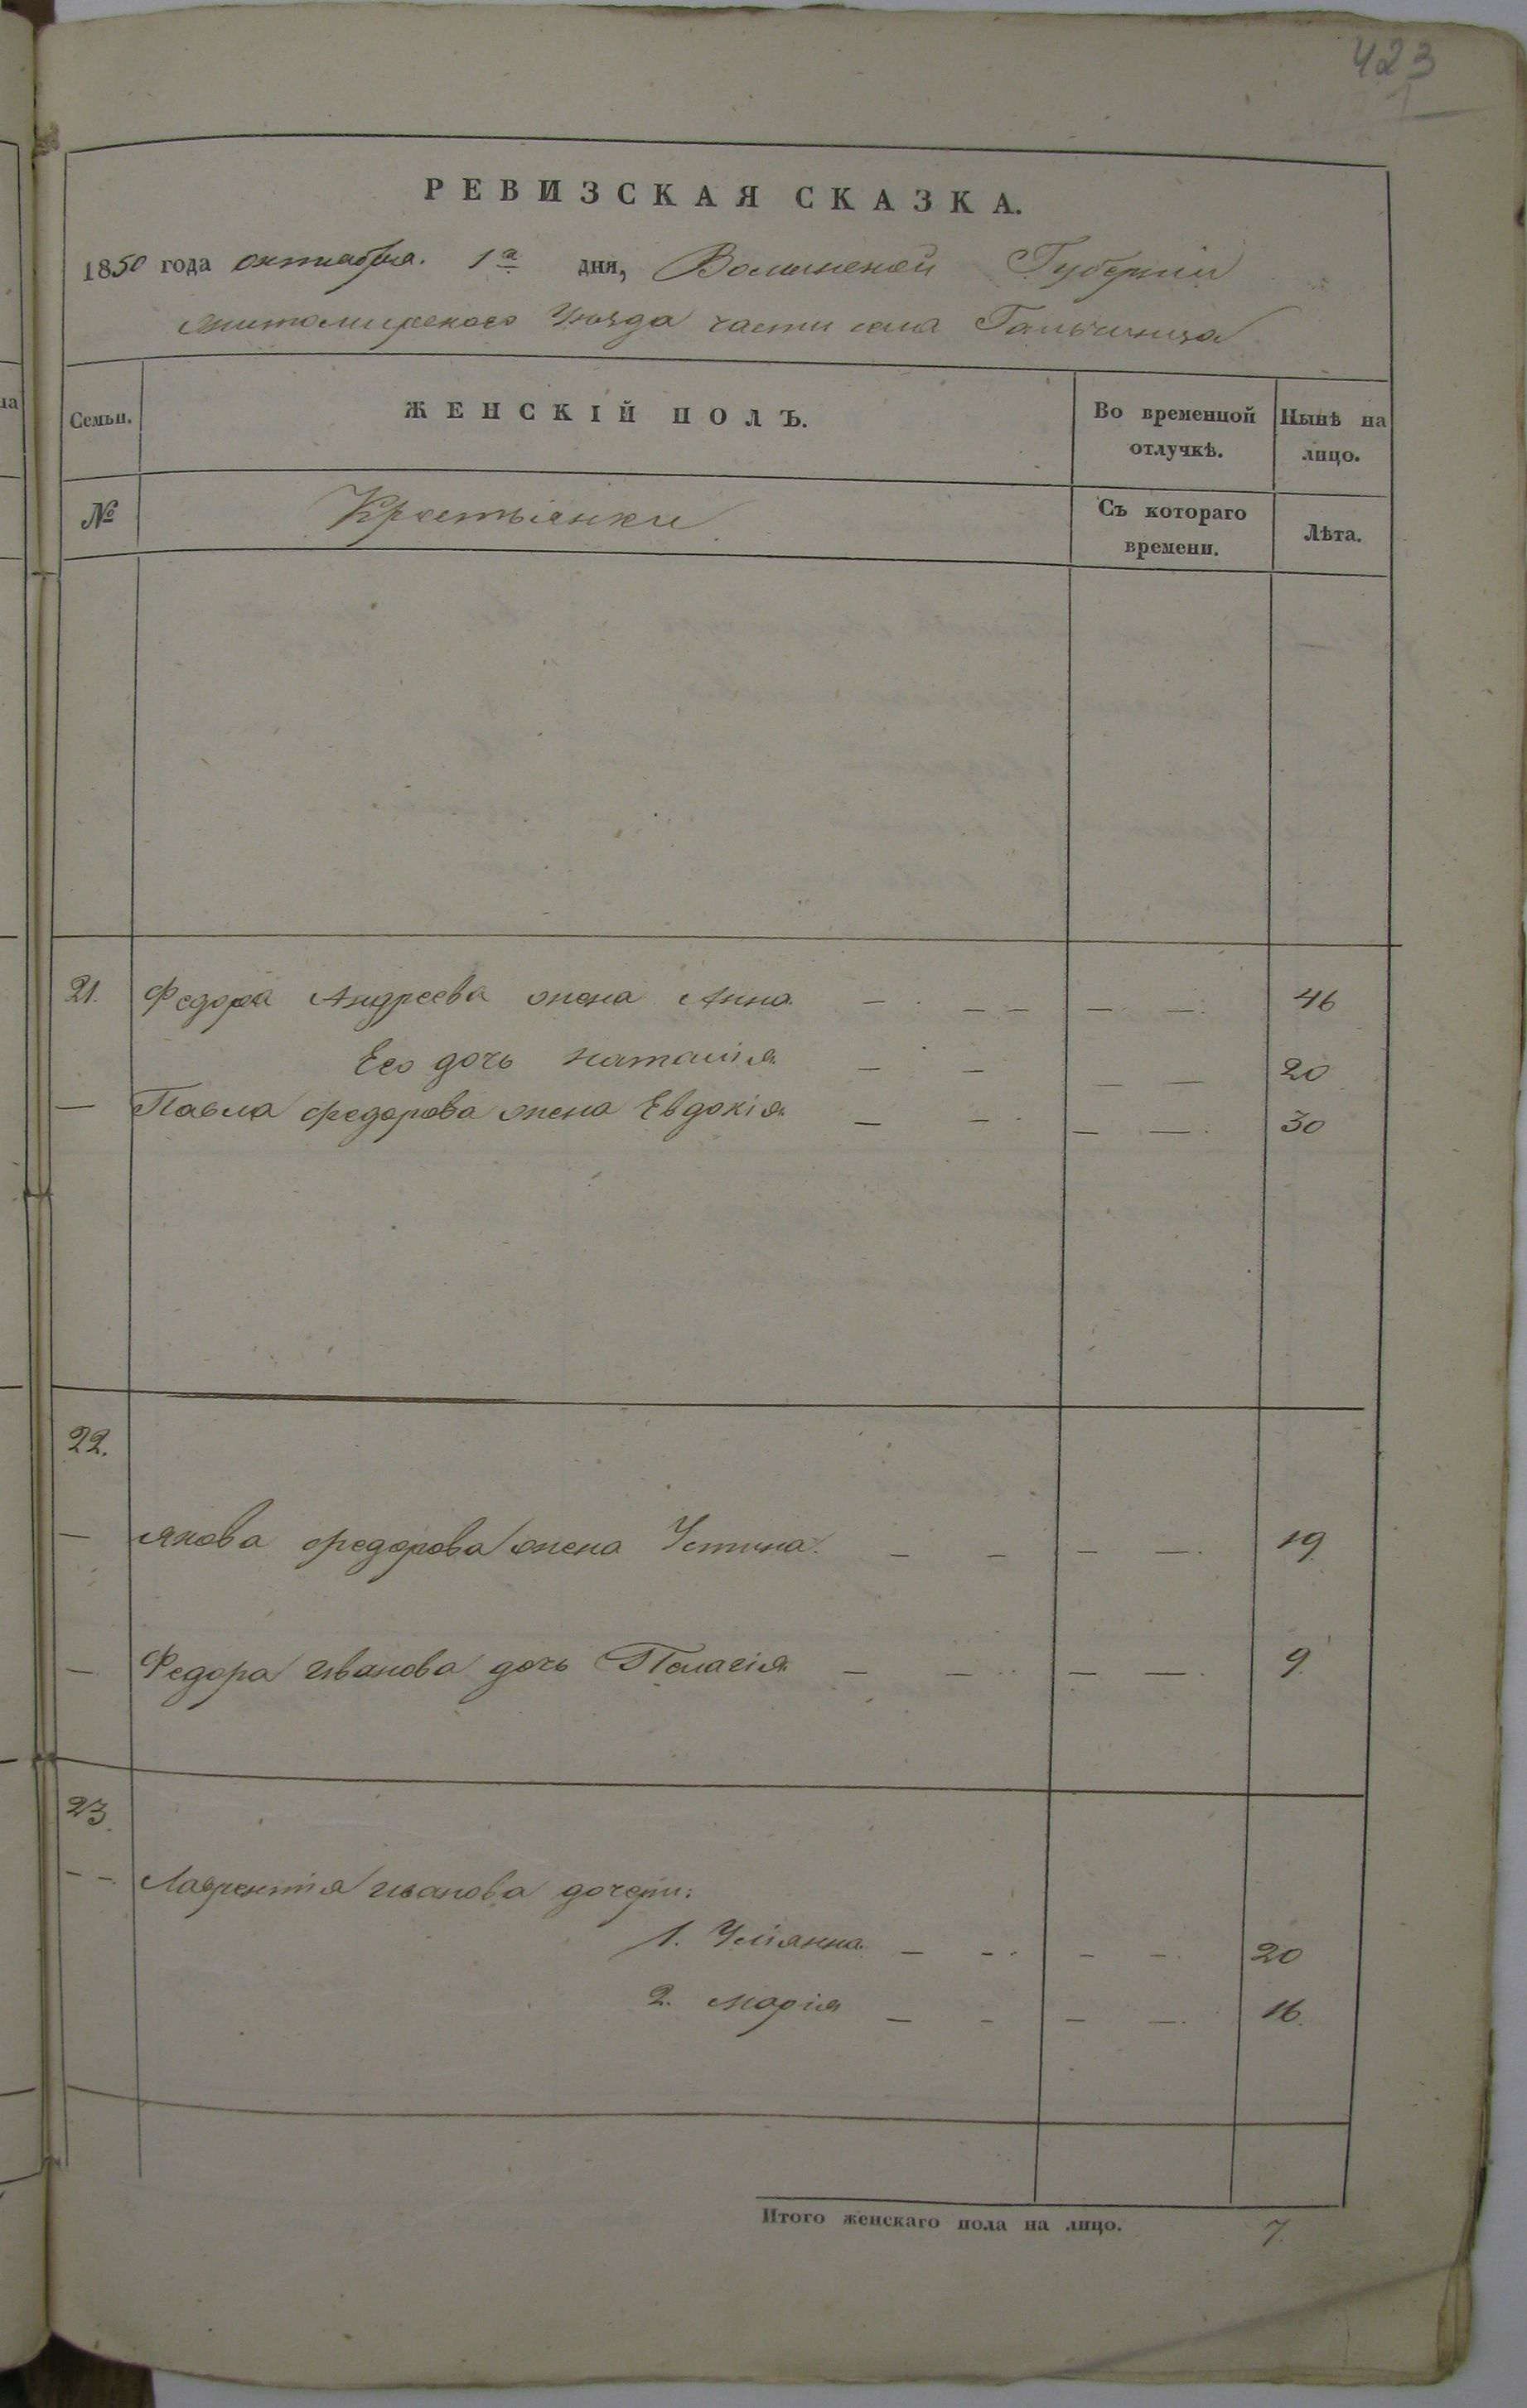 423
РЕВИЗСКАЯ СКАЗКА.
1850 года октября 1го дня, Волынской Губерніи
Житомирскаго Уѣзда части села Гальчинца
Семьи.
ЖЕНСКІЙ ПОЛЪ.
Во временной отлучкѣ.
Нынѣ на лицо.
№
Крестьянки
Съ котораго времени.
Лѣта.
21. Федора Андреева жена Анна — — — — — 46
Его дочь Наталія — — — — 20
— Павла Федорова жена Евдокія — — — — 30
22.
— Якова Федорова жена Устина — — — — 19
— Федора Иванова дочь Пелагія — — — — 9
23.
— — Лаврентія Иванова дочери:
1. Уліянна — — — — 20
2. Марія — — — — 16
Итого женскаго пола на лицо. 7